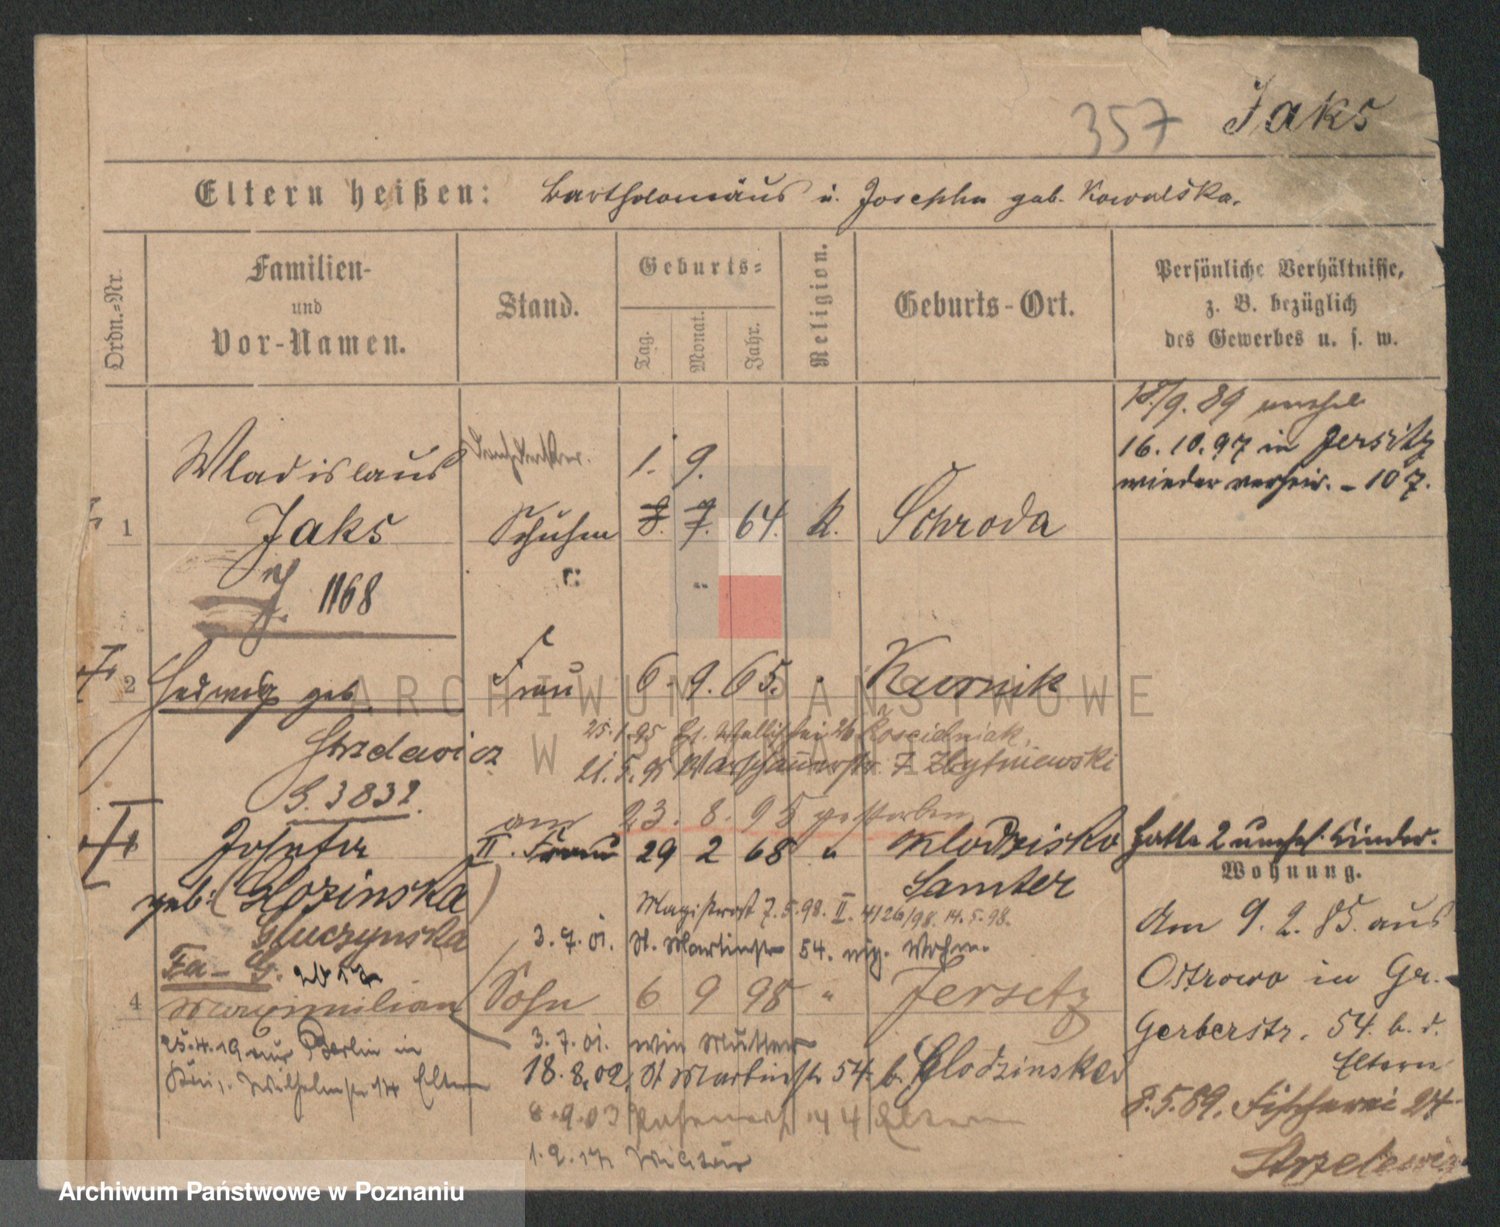 357 Jaks
Eltern heißen: Bartholomäus u. Josepha geb. Kowalska.
Ordn.-Nr.
Familien-
und
Vor-Namen.
Stand.
Geburts-
Tag.
Monat.
Jahr.
Religion.
Geburts-Ort.
Persönliche Verhältnisse,
z. B. bezüglich
des Gewerbes u. s. w.
18./9. 89
16. 10. 97 in Jersitz
wieder verheir. - 107.
Wladislaus 1. 9.
1 Jaks Schuhm 8. 7. 64. K. Schroda
J. 1168
2 Hedwig geb. Frau 6. 9. 65. " Kurnik
25.1.95 26 Koscielniak
21.5.95 Warschauerstr. 7 Zbytniewski
G. 3832.
am 23. 8. 95 gestorben
Josefa II. Frau 29 2 68 " Klodzisko hatte 2 unehel. Kinder.
Samter
Wohnung.
geb. Glozinska
Magistrat 7.5.98. II. 4126/98. 14.5.98.
Gluczynska
3.7.01. St. Martinstr 54. Wohn.
Am 9. 2. 85. aus
Fa- G. 2017
Ostrowo in Gr.-
4 Maximilian Sohn 6 9 98 " Jersitz
Gerberstr. 54. b. d.
Eltern
25.4.19 aus Berlin in
3.7.01. wie Mutter
Wilhelmstr 14 Eltern
18.8.02 St Martinstr 54 b. Glodzinska
8.5.89. Fischerei 27
8.9.03 44 Eltern
1.2.17 Militär
Strzelewicz
ARCHIWUM PAŃSTWOWE
W POZNANIU
Archiwum Państwowe w Poznaniu